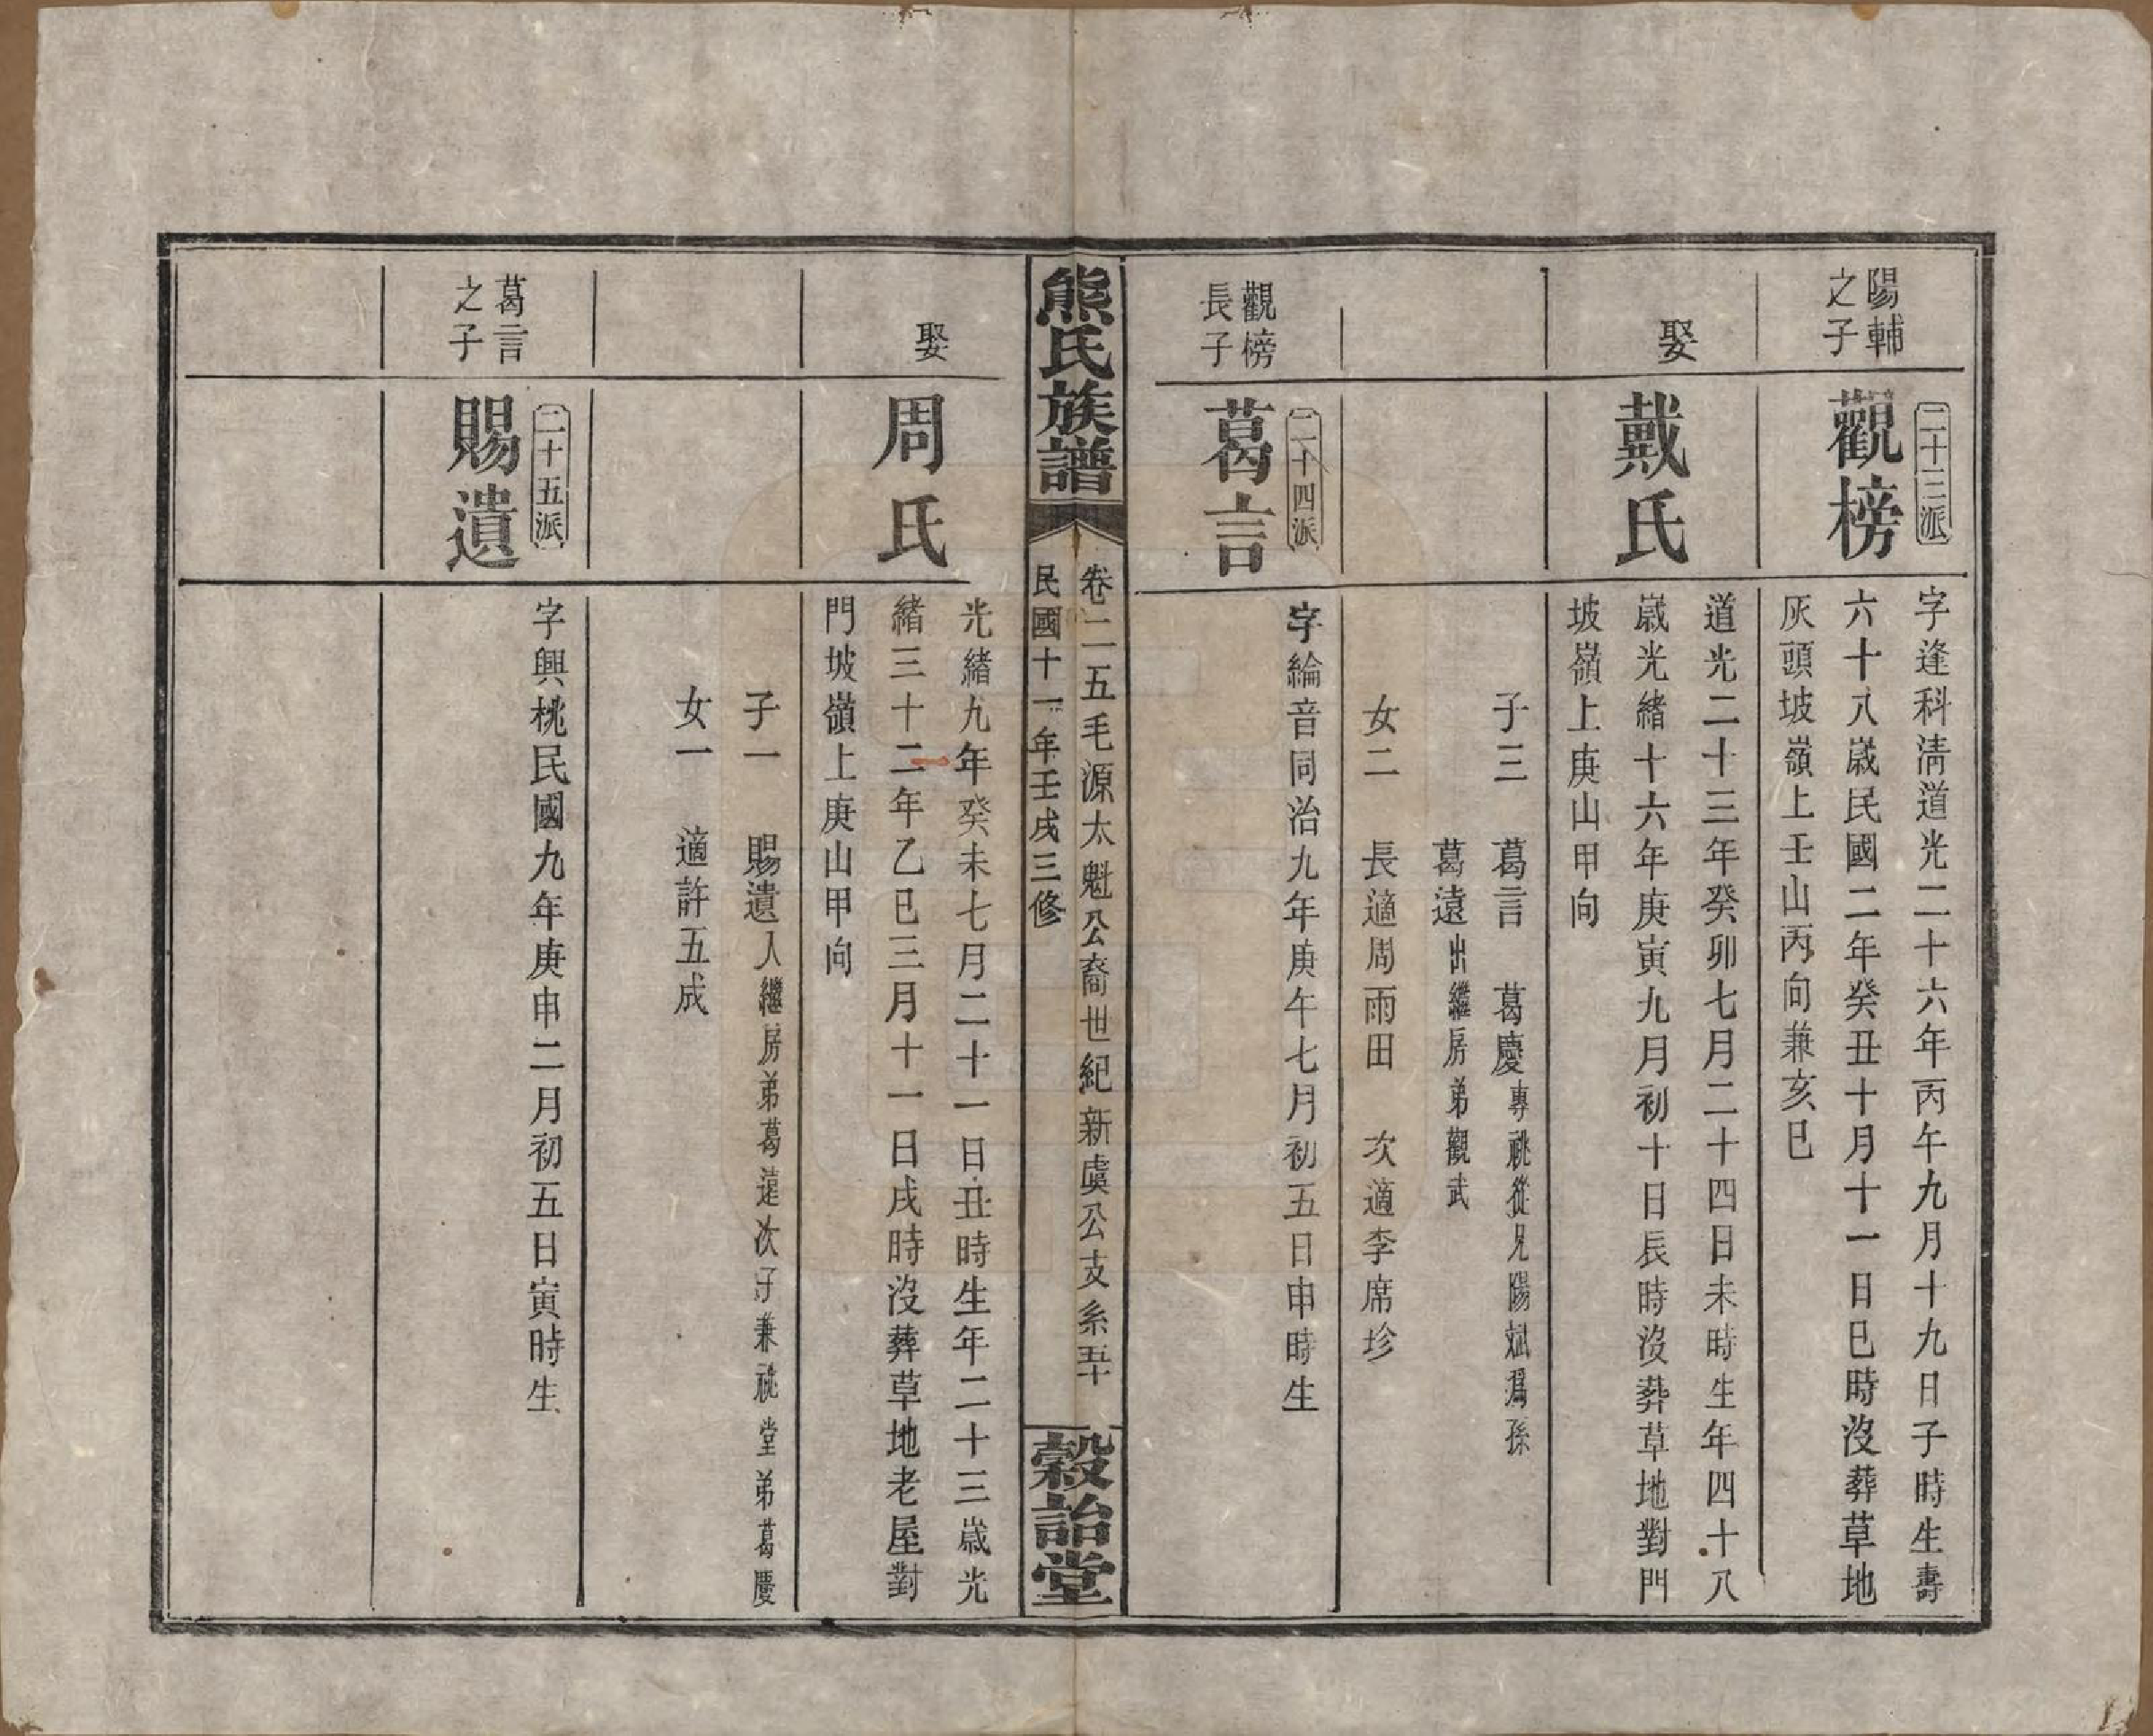 陽輔
之子
二十三派
觀榜
字逢科清道光二十六年丙午九月十九日子時生壽
六十八歲民國二年癸丑十月十一日巳時沒葬草地
灰頭坡嶺上壬山丙向兼亥巳
娶
戴氏
道光二十三年癸卯七月二十四日未時生年四十八
歲光緒十六年庚寅九月初十日辰時沒葬草地對門
坡嶺上庚山甲向
子三 葛言 葛慶專祧從兄陽斌爲孫
葛遠出繼房弟觀武
女二 長適周雨田 次適李席珍
觀榜
長子
二十四派
葛言
字綸音同治九年庚午七月初五日申時生
熊氏族譜
卷二五毛源太魁公裔世紀新虞公支系五十
民國十一年壬戌三修
穀詒堂
娶
周氏
光緒九年癸未七月二十一日丑時生年二十三歲光
緒三十二年乙巳三月十一日戌時沒葬草地老屋對
門坡嶺上庚山甲向
子一 賜遺入繼房弟葛遠次子兼祧堂弟葛慶
女一 適許五成
葛言
之子
二十五派
賜遺
字興桃民國九年庚申二月初五日寅時生